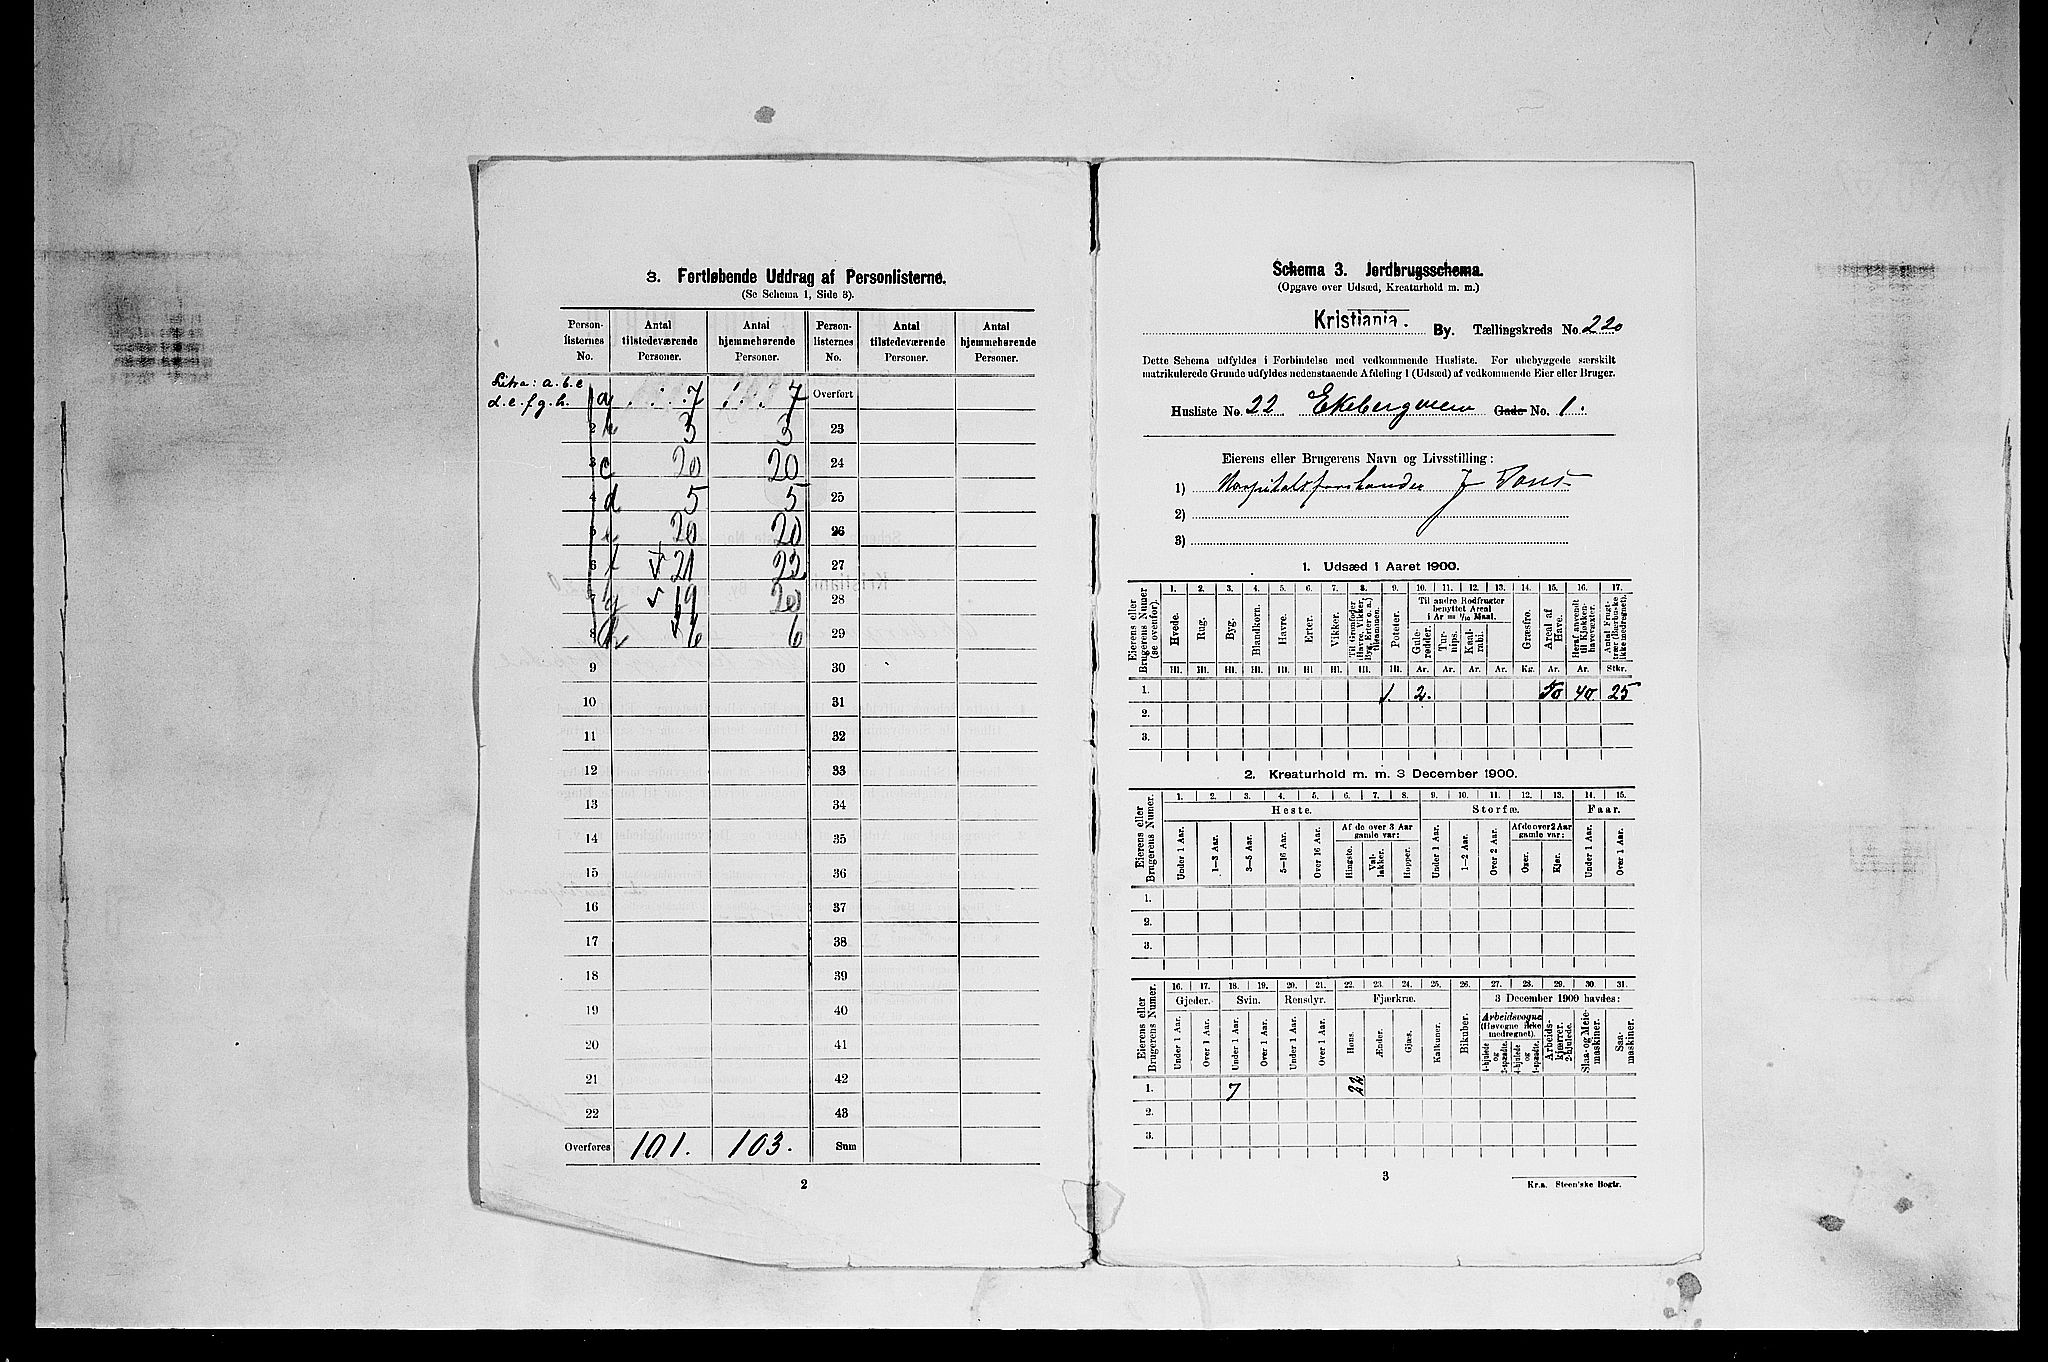 3. Fortløbende Uddrag af Personlisterne.
(Se Schema 1, Side 3).
Person-listernes No. | Antal tilstedeværende Personer. | Antal hjemmehørende Personer. | Person-listernes No. | Antal tilstedeværende Personer. | Antal hjemmehørende Personer.
Litra: a. b. c
d. e. f. g. h.
1 a 7 7 Overført
2 b 3 3 23
3 c 20 20 24
4 d 5 5 25
5 e 20 20 26
6 f 21 22 27
7 g 19 20 28
8 h 6 6 29
9 30
10 31
11 32
12 33
13 34
14 35
15 36
16 37
17 38
18 39
19 40
20 41
21 42
22 43
Overføres 101. 103. Sum
2
Schema 3. Jordbrugsschema.
(Opgave over Udsæd, Kreaturhold m. m.)
Kristiania. By. Tællingskreds No. 220
Dette Schema udfyldes i Forbindelse med vedkommende Husliste. For ubebyggede særskilt
matrikulerede Grunde udfyldes nedenstaaende Afdeling 1 (Udsæd) af vedkommende Eier eller Bruger.
Husliste No. 22 Ekebergveien Gade No. 1.
Eierens eller Brugerens Navn og Livsstilling:
1) Hospitalsforstander J
2)
3)
1. Udsæd i Aaret 1900.
Eierens eller Brugerens Numer (se ovenfor).
1. 2. 3. 4. 5. 6. 7. 8. 9. 10. 11. 12. 13. 14. 15. 16. 17.
Hvede. Rug. Byg. Blandkorn. Havre. Erter. Vikker. Til Grønfoder (Havre, Vikker, Byg, Erter o. a.) tilsammen. Poteter. Til andre Rodfrugter benyttet Areal i Ar = 1/10 Maal. Gule-rødder. Tur-nips. Kaal-rabi. Græsfrø. Areal af Have. Heraf anvendt til Kjøkken-havevæxter. Antal Frugt-trær (Bærbuske ikke medregnet).
Hl. Hl. Hl. Hl. Hl. Hl. Hl. Hl. Hl. Ar. Ar. Ar. Ar. Kg. Ar. Ar. Stkr.
1. 1. 2. 50 40 25
2.
3.
2. Kreaturhold m. m. 3 December 1900.
Eierens eller Brugerens Numer.
1. 2. 3. 4. 5. 6. 7. 8. 9. 10. 11. 12. 13. 14. 15.
Heste. Storfæ. Faar.
Under 1 Aar. 1—3 Aar. 3—5 Aar. 5—16 Aar. Over 16 Aar. Af de over 3 Aar gamle var: Hingste. Val-lakker. Hopper. Under 1 Aar. 1—2 Aar. Over 2 Aar. Af de over 2 Aar gamle var: Oxer. Kjør. Under 1 Aar. Over 1 Aar.
1.
2.
3.
Eierens eller Brugerens Numer.
16. 17. 18. 19. 20. 21. 22. 23. 24. 25. 26. 27. 28. 29. 30. 31.
Gjeder. Svin. Rensdyr. Fjærkræ. Bikuber. 3 December 1900 havdes:
Under 1 Aar. Over 1 Aar. Under 1 Aar. Over 1 Aar. Under 1 Aar. Over 1 Aar. Høns. Ænder. Gjæs. Kalkuner. Arbeidsvogne (Høvogne ikke medregnet). 4-hjulede og 2-spændte. 4-hjulede og 1-spændte. Arbeids-kjærrer, 2-hjulede. Slaa- og Meie-maskiner. Saa-maskiner.
1. 7 22
2.
3.
3
Kr.a. Steen'ske Bogtr.